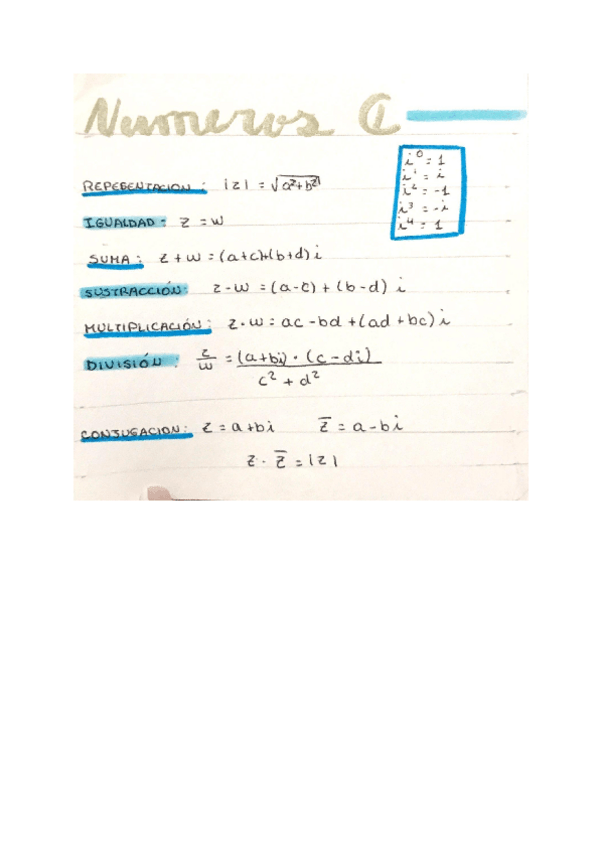 Numeros ℂ
i⁰ = 1
i¹ = i
i² = -1
i³ = -i
i⁴ = 1
REPESENTACION: |z| = √a²+b²
IGUALDAD: z = w
SUMA: z + w = (a+c)+(b+d) i
SUSTRACCIÓN: z - w = (a-c) + (b-d) i
MULTIPLICACIÓN: z · w = ac - bd + (ad + bc) i
DIVISIÓN: z/w = (a+bi) · (c - di) / c² + d²
CONJUGACION: z = a + bi z̅ = a - bi
z · z̅ = |z|